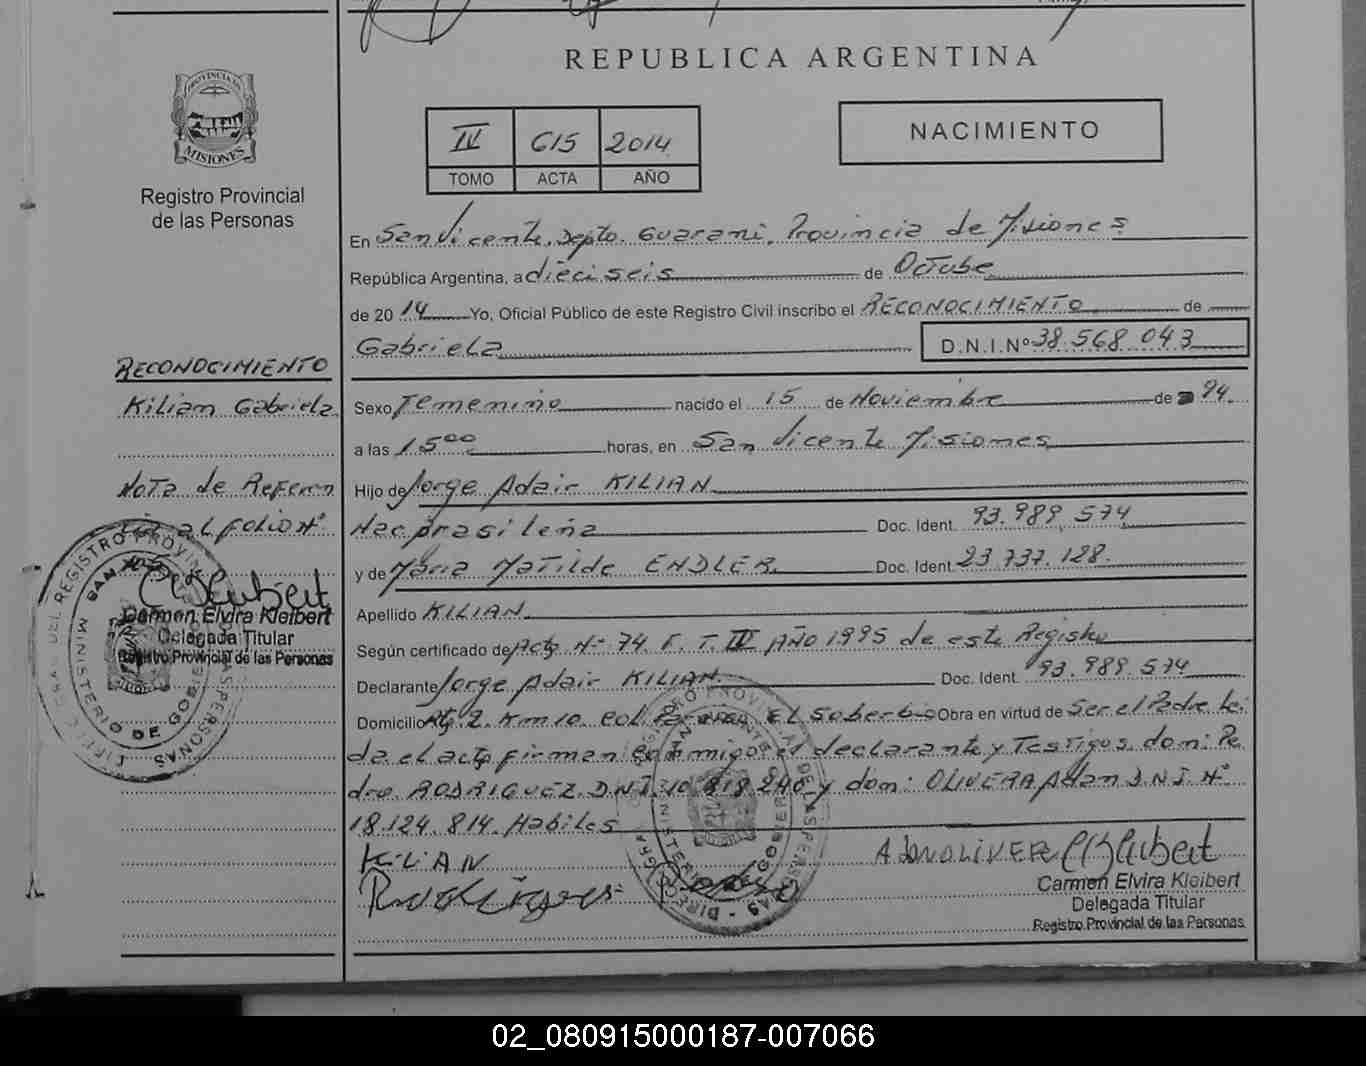 REPUBLICA ARGENTINA
PROVINCIA DE
MISIONES
Registro Provincial
de las Personas
IV 615 2014
TOMO ACTA AÑO
NACIMIENTO
En San Vicente, Depto. Guarani, Provincia de Misiones
República Argentina, a dieciseis de Octube
de 2014 Yo, Oficial Público de este Registro Civil inscribo el RECONOCIMIENTO de
Gabriela D.N.I.Nº 38.568.043
Sexo Femenino nacido el 15 de Noviembre de 94.
a las 15⁰⁰ horas, en San Vicente Misiones
Hijo de Jorge Adair KILIAN
Nac. brasileña Doc. Ident. 93.989.574
y de Maria Matilde ENDLER. Doc. Ident. 23.737.128.
Apellido KILIAN
Según certificado de Acta Nº 74 F. T. IV AÑO 1995 de este Registro
Declarante Jorge Adair KILIAN. Doc. Ident. 93.989.574
Domicilio 2. Km 10 EL Soberbio Obra en virtud de Ser el Padre Lei
da el acta firman conmigo el declarante y Testigos don: Pe
dro RODRIGUEZ D.N.I. 10.818.240 y don: OLIVERA Adan D.N.I. Nº
18.124.814. Habiles
KiLiAN
Carmen Elvira Kleibert
Delegada Titular
Registro Provincial de las Personas
RECONOCIMIENTO
Kilian Gabriela
Nota de Referen
cia al folio Nº
Carmen Elvira Kleibert
Delegada Titular
Registro Provincial de las Personas
02_080915000187-007066